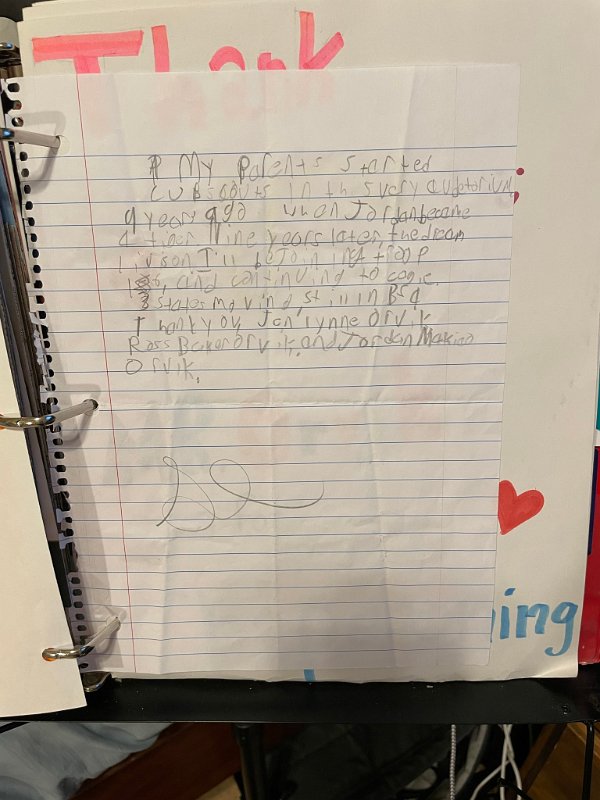 Thank
My Parents started
cubscouts in this very audotorium,
9 years ago when Jordan became
a tiger Nine years later, the dream
livson I'll be Joining troop
and continuing to come.
states moving, still in BSA
Thank you, Jan lynne Orvik
Ross Baker Orvik, and Jordan Makiao
Orvik.
ing